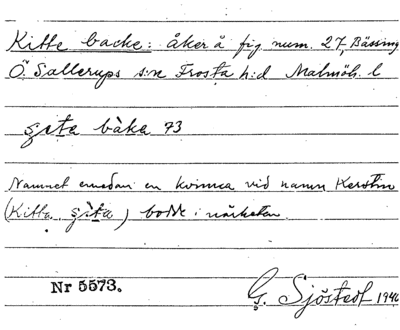 Kitte backe: åker å fig. num. 27, Bässing
Ö. Sallerups s:n Frosta h:d Malmöh. l
gìta bàka 73
Namnet emedan en kvinna vid namn Kerstin
(Kitta, gìta) bott i närheten.
Nr 5573.
G. Sjöstedt 1946